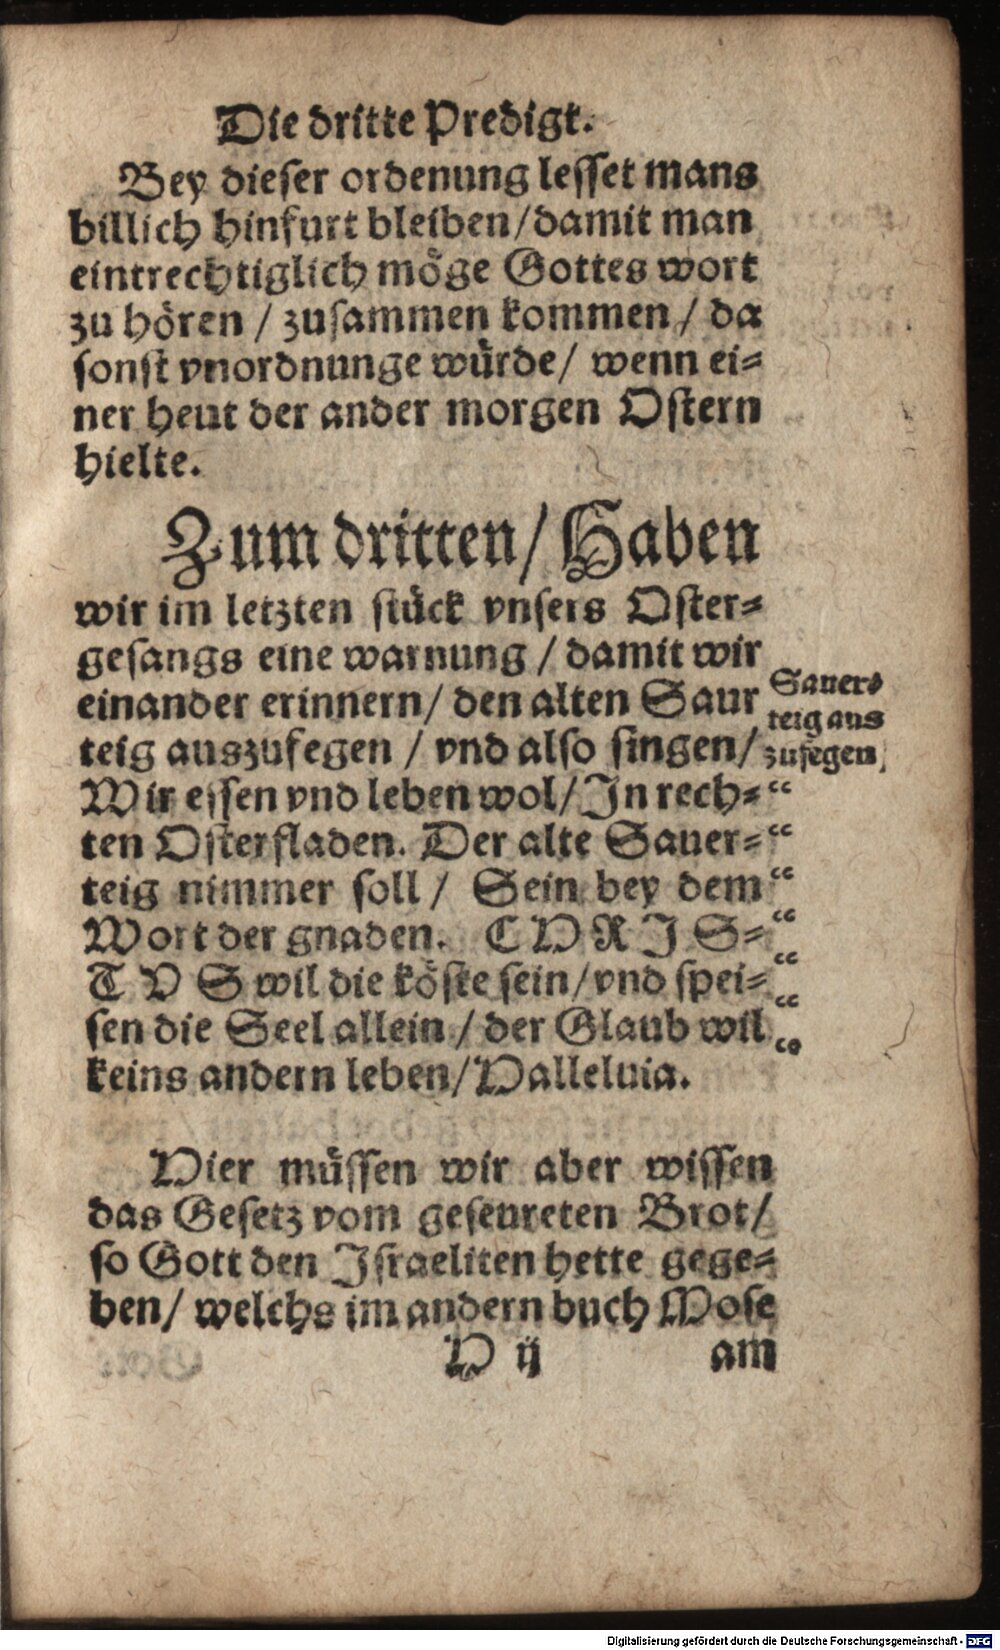 Die dritte Predigt.
Bey dieser ordenung lesset mans
billich hinfurt bleiben/damit man
eintrechtiglich möge Gottes wort
zu hören / zusammen kommen / da
sonst vnordnunge würde/ wenn ei=
ner heut der ander morgen Ostern
hielte.
Zum dritten/ Haben
wir im letzten stück vnsers Oster=
gesangs eine warnung / damit wir
einander erinnern/ den alten Saur
teig auszufegen / vnd also singen/
Sauer=
teig aus
zufegen
Wir essen vnd leben wol/ In rech= “
ten Osterfladen. Der alte Sauer= “
teig nimmer soll / Sein bey dem “
Wort der gnaden. C H R I S= “
T V S wil die köste sein/vnd spei= “
sen die Seel allein / der Glaub wil “
keins andern leben/Halleluia. “
Hier müssen wir aber wissen
das Gesetz vom geseureten Brot/
so Gott den Israeliten hette gege=
ben/ welchs im andern buch Mose
H ij am
Digitalisierung gefördert durch die Deutsche Forschungsgemeinschaft - DFG